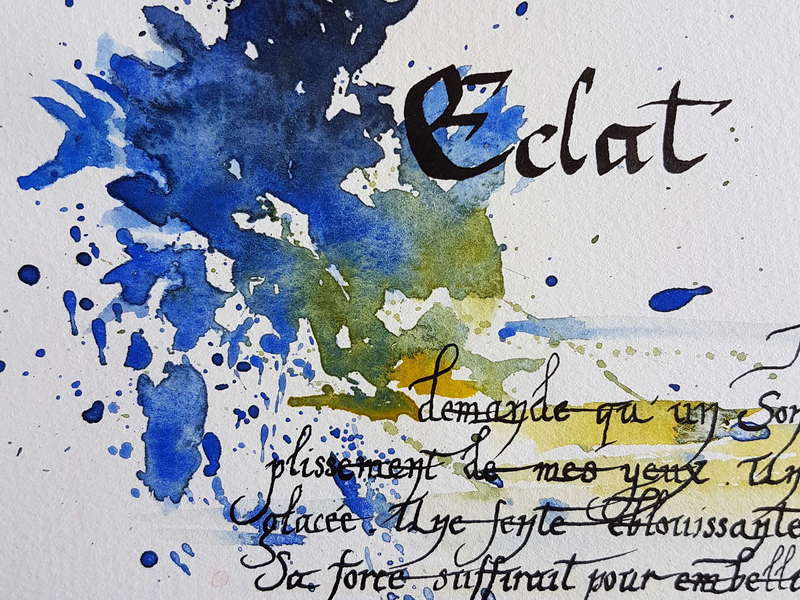 Eclat
demande qu'un Son
plissement de mes yeux. Un
glacée. Une fente éblouissante
Sa force suffirait pour embell